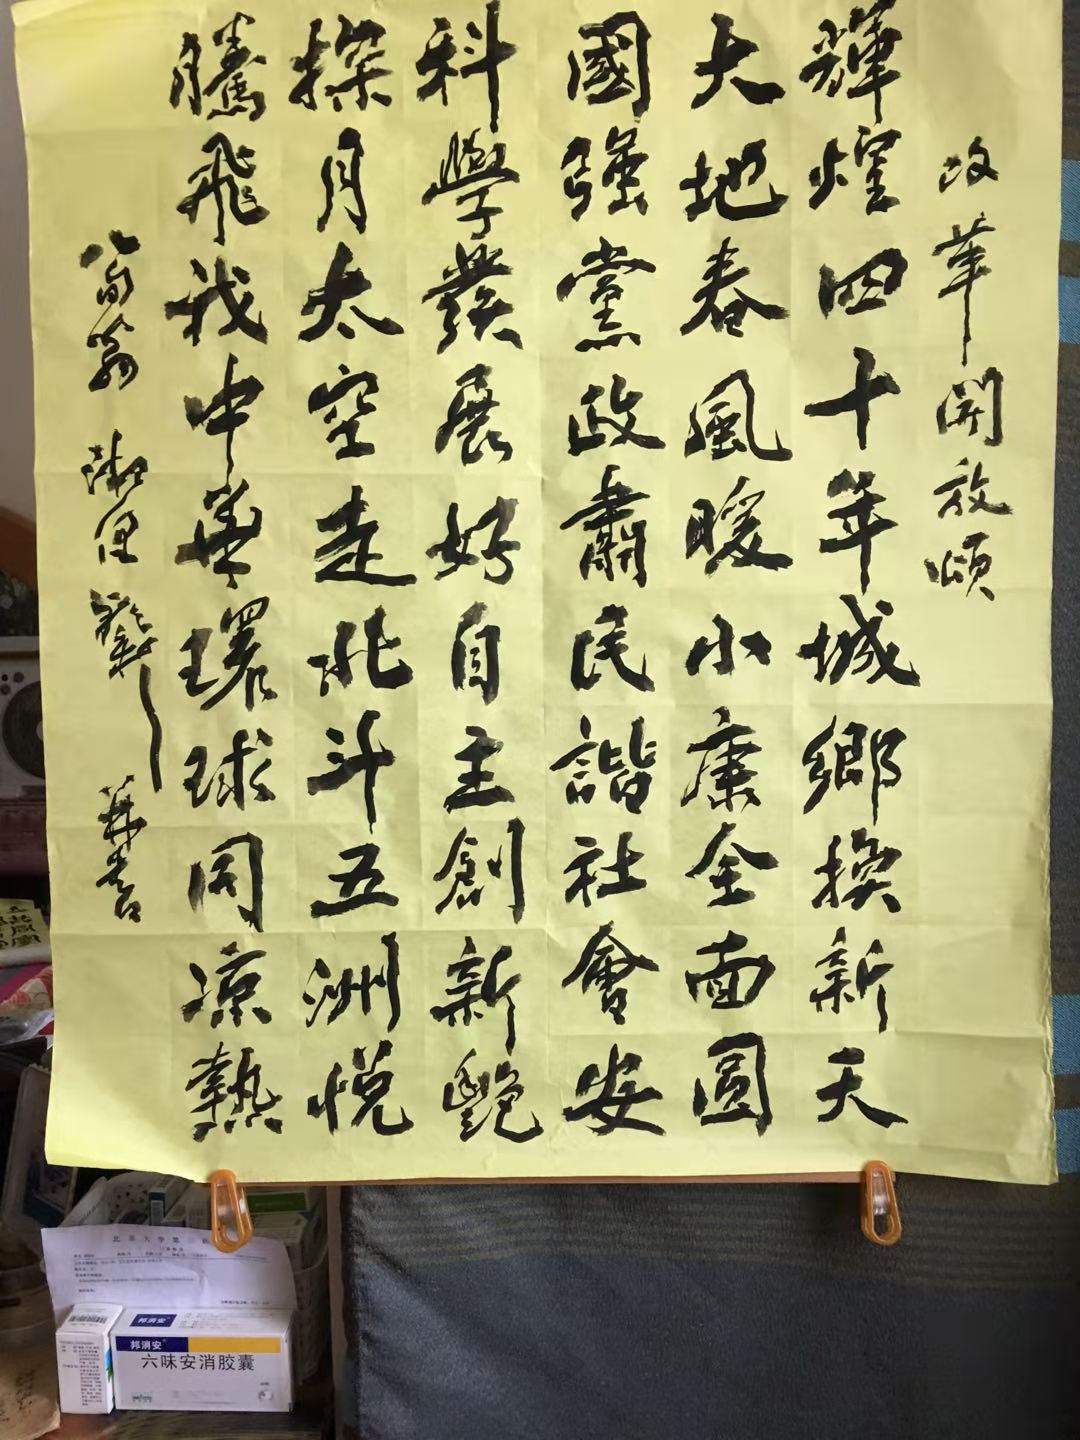 改革開放頌
輝煌四十年城鄉換新天
大地春風暖小康全面圓
國強黨政肅民諧社會安
科學發展好自主創新艷
探月太空走北斗五洲悅
騰飛我中華環球同涼熱
八旬翁
書
北京大学第
邦消安
六味安消胶囊